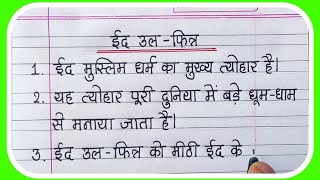 ईद उल-फित्र
1. ईद मुस्लिम धर्म का मुख्य त्योहार है।
2. यह त्योहार पूरी दुनिया में बड़े धूम-धाम
से मनाया जाता है।
3. ईद उल-फित्र को मीठी ईद के